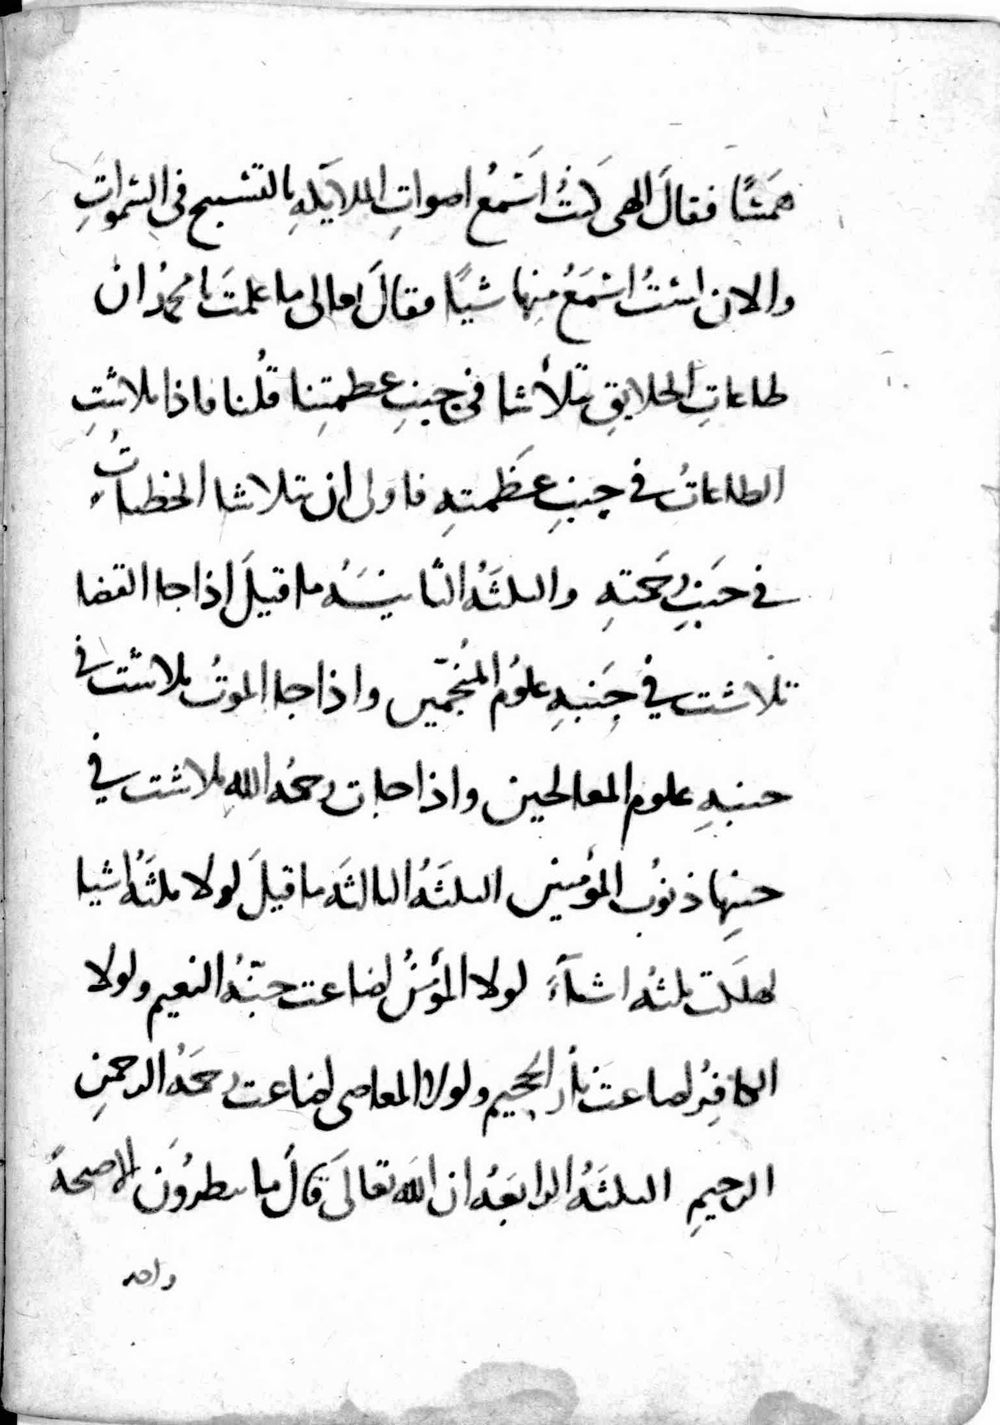 همسًا فقالَ الهى كنتُ اَسَمعُ اصواتِ الملايكهِ بالتسبيح فى السمواتِ
والان لستُ اسَمعُ مِنها شيًا فقالَ تعالى ما علمتَ يا محمدُ ان
طاعاتِ الخلايقِ تتلاشا فى جنبِ عظمتِنا قُلنا فاذا تلاشتِ
الطاعاتُ فى جنبِ عظَمتهِ فاولى ان تتلاشا الخطياتُ
فى جَنبِ رحَمتهِ والثلثَهُ الثانيَهُ ما قيلَ اذا جا القضا
تلاشت فى جَنبهِ علومُ المُنجّمين واذا جا الموتُ تلاشت فى
جنبهِ علوم المعالجين واذا جات رحمهُ اللهِ تلاشت فى
جنبِها ذنوب المؤمنين الثلثَهُ الثالثَه ما قيلَ لولا ثلثَهُ اشيا
لهلكت ثلثهُ اشيآءَ لولا المؤمنُ لضاعت جنّهُ النعيم ولولا
الكافِرُ لضاعَت نارُ الجحيم ولولا المعاصى لضاعت رحمَهُ الرحمنِ
الرحيمِ الثلثَهُ الرابعَهُ ان اللهَ تعالَى قالَ ما ينظرُونَ الا صيحةً
واحد